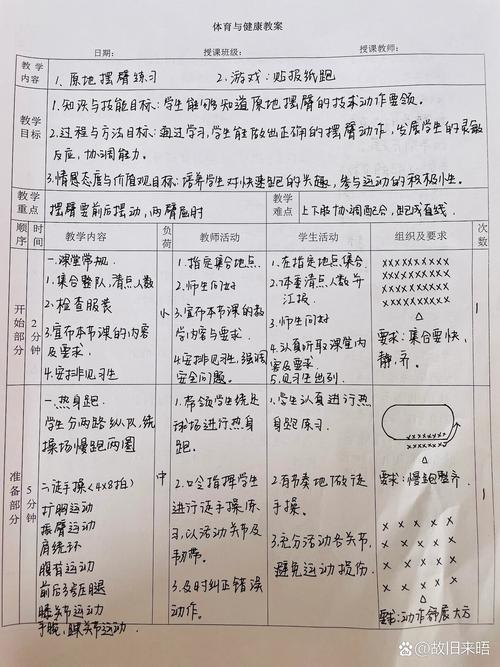 体育与健康教案
日期: 授课班级: 授课教师:
教学内容 1、原地摆臂练习 2、游戏:贴报纸跑
教学目标 1.知识与技能目标:学生能够知道原地摆臂的技术动作要领。
2.过程与方法目标:通过学习,学生能做出正确的摆臂动作,发展学生的灵敏
反应,协调能力。
3.情感态度与价值观目标:培养学生对快速跑的兴趣,参与运动的积极性。
教学重点 摆臂要前后摆动,两臂屈肘 教学难点 上下肢协调配合,跑成直线.
顺序 时间 教学内容 负荷 教师活动 学生活动 组织及要求 次数
开始部分 2分钟
一.课堂常规.
1.集合整队,清点人数
2.检查服装
3.宣布本节课的内容
及要求.
4.安排见习生
小
1.指定集合地点.
2.师生问好
3.宣布本节课的教
学内容与要求.
4.安排见习生,强调
安全问题。
1.在指定地点集合.
2.体委清点人数并
汇报.
3.师生问好
4.认真听取课堂内
容及要求.
5.见习生出列.
××××××××
××××××××
××××××××
××××××××
要求:集合要快、
静、齐.
准备部分 5分钟
一.热身跑.
学生分两路纵队,绕
操场慢跑两圈
二.徒手操<4×8拍>
扩胸运动
振臂运动
肩绕环
腹背运动
前后弓步压腿
膝关节运动
手腕,踝关节运动.
中
1.带领学生绕足
球场进行热身
跑.
2.口令指挥学生
进行徒手操练
习,以活动关节及
韧带。
3.及时纠正错误
动作。
1.学生认真进行热
身跑练习.
2.有节奏地做徒
手操。
3.充分活动各关节,
避免运动损伤.
要求:慢跑整齐.
× × × × ×
× × × × ×
× × × × ×
× × × × ×
要求:动作舒展大方
@故旧来晤